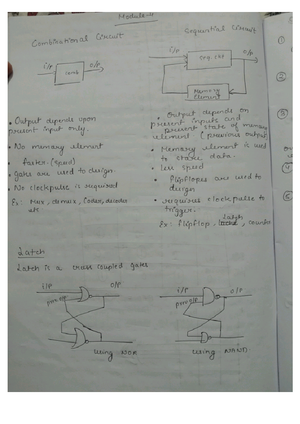 Module-4
Combinational Circuit
i/p
o/p
comb
• Output depends upon
present input only.
• No memory element
• faster. (speed)
• gates are used to design.
• No clockpulse is required
Ex: Mux, demux, coder, decoder
etc
Sequential Circuit
i/p
o/p
Memory
Element
• Output depends on
present inputs and
present state of memory
element (previous output
• Memory element is used
to store data.
• less speed
• Flipflopes are used to
design
• requires clockpulse to
trigger.
Ex: flipflop, latch, counter
Latch
Latch is a cross coupled gates
i/p
o/p
using NOR
i/p
o/p
using NAND
1
2
3